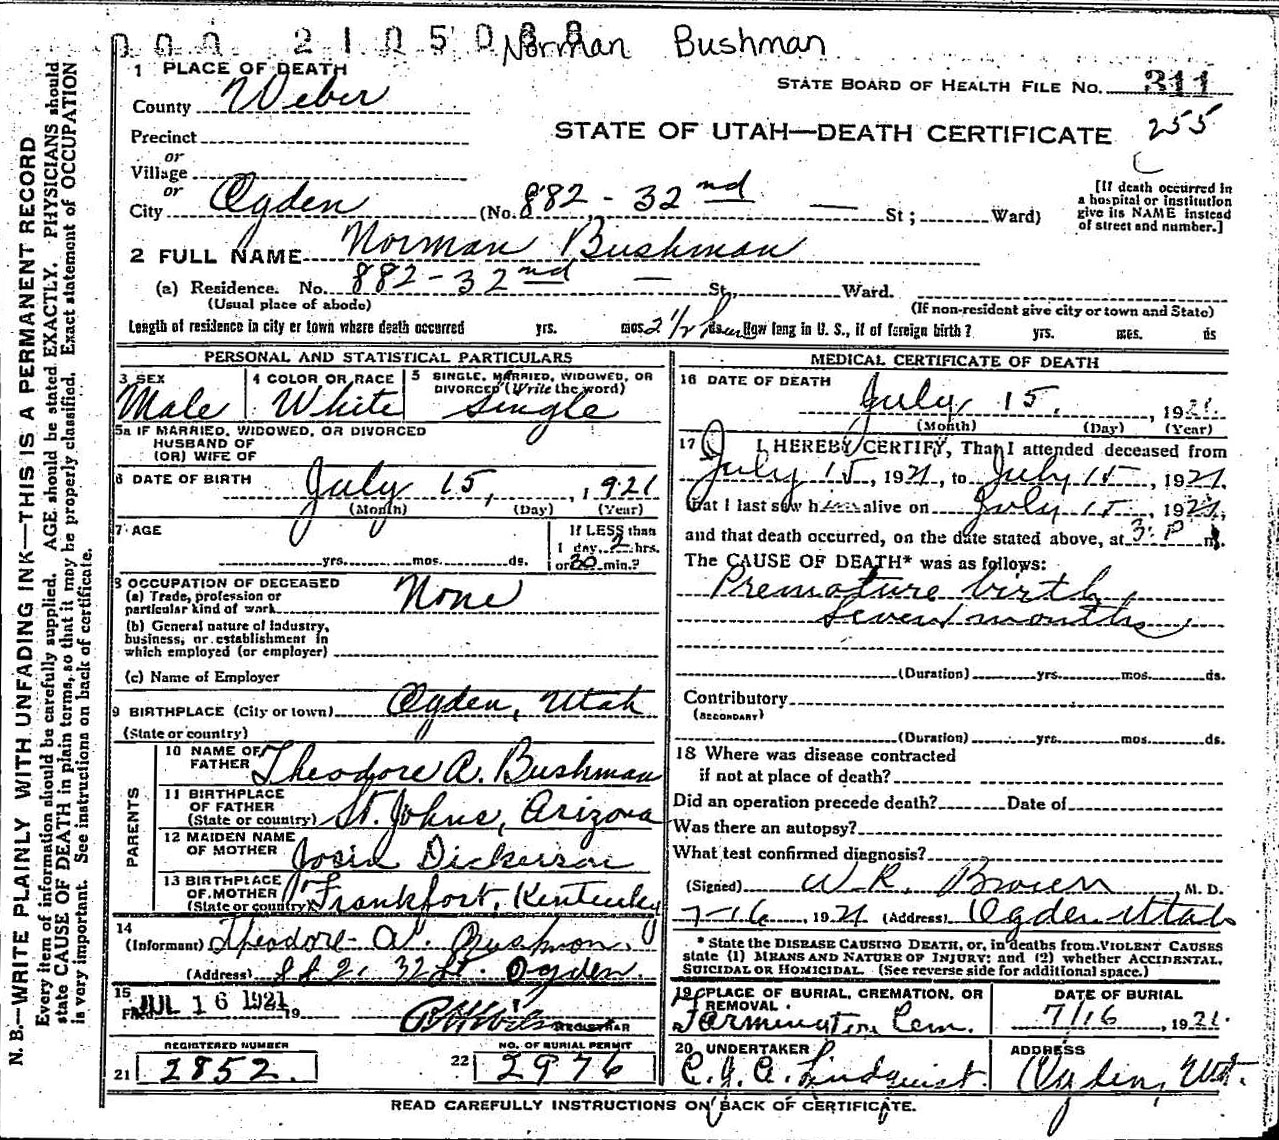 000 2105088 Norman Bushman
1 PLACE OF DEATH
County Weber
STATE BOARD OF HEALTH FILE No. 311
Precinct
STATE OF UTAH—DEATH CERTIFICATE 255
or
Village
or
City Ogden (No. 882 - 32nd — St; Ward)
[If death occurred in
a hospital or institution
give its NAME instead
of street and number.]
2 FULL NAME Norman Bushman
(a) Residence. No. 882-32nd — St, Ward.
(Usual place of abode) (If non-resident give city or town and State)
Length of residence in city or town where death occurred yrs. mos. 2 1/2 ds. How long in U. S., if of foreign birth? yrs. mos. ds
PERSONAL AND STATISTICAL PARTICULARS
3 SEX Male
4 COLOR OR RACE White
5 SINGLE, MARRIED, WIDOWED, OR
DIVORCED (Write the word)
Single
5a IF MARRIED, WIDOWED, OR DIVORCED
HUSBAND OF
(OR) WIFE OF
6 DATE OF BIRTH July 15, 1921
(Month) (Day) (Year)
7 AGE yrs. mos. ds.
If LESS than
1 day, 2 hrs.
or 30 min.?
8 OCCUPATION OF DECEASED None
(a) Trade, profession or
particular kind of work
(b) General nature of industry,
business, or establishment in
which employed (or employer)
(c) Name of Employer
9 BIRTHPLACE (City or town) Ogden, Utah
(State or country)
PARENTS
10 NAME OF
FATHER Theodore A. Bushman
11 BIRTHPLACE
OF FATHER
(State or country) St. Johns, Arizona
12 MAIDEN NAME
OF MOTHER Josia Dickerson
13 BIRTHPLACE
OF MOTHER
(State or country) Frankfort, Kentucky
14
(Informant) Theodore A. Bushman
(Address) 882. 32 St. Ogden.
15
Filed JUL 16 1921 19
REGISTRAR
REGISTERED NUMBER
21 2852.
NO. OF BURIAL PERMIT
22 2976
MEDICAL CERTIFICATE OF DEATH
16 DATE OF DEATH
July 15, 1921
(Month) (Day) (Year)
17 I HEREBY CERTIFY, That I attended deceased from
July 15, 1921, to July 15, 1921,
that I last saw h alive on July 15, 1921,
and that death occurred, on the date stated above, at 3 P m.
The CAUSE OF DEATH* was as follows:
Premature birth
Seven months
(Duration) yrs. mos. ds.
Contributory
(SECONDARY)
(Duration) yrs. mos. ds.
18 Where was disease contracted
if not at place of death?
Did an operation precede death? Date of
Was there an autopsy?
What test confirmed diagnosis?
(Signed) W. R. Brown M. D.
7-16, 1921 (Address) Ogden Utah
* State the DISEASE CAUSING DEATH, or, in deaths from VIOLENT CAUSES
state (1) MEANS AND NATURE OF INJURY; and (2) whether ACCIDENTAL,
SUICIDAL OR HOMICIDAL. (See reverse side for additional space.)
19 PLACE OF BURIAL, CREMATION, OR
REMOVAL
Farmington Cem.
DATE OF BURIAL
7/16, 1921.
20 UNDERTAKER
C. J. A. Lindquist.
ADDRESS
Ogden, Ut.
READ CAREFULLY INSTRUCTIONS ON BACK OF CERTIFICATE.
N. B.—WRITE PLAINLY WITH UNFADING INK—THIS IS A PERMANENT RECORD
Every item of information should be carefully supplied. AGE should be stated EXACTLY. PHYSICIANS should
state CAUSE OF DEATH in plain terms, so that it may be properly classified. Exact statement of OCCUPATION
is very important. See instructions on back of certificate.